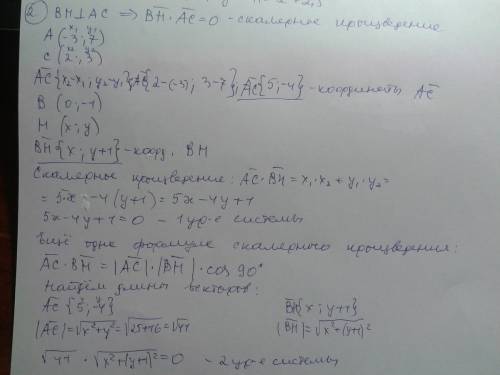 ② BH⊥AC ⟹ B̅H̅·A̅C̅=0 - скалярное произведение
x₁ y₁
A (-3; 7)
x₂ y₂
C (2; 3)
A̅C̅{x₂-x₁; y₂-y₁}; A̅C̅{2-(-3); 3-7}; A̅C̅{5;-4} - координаты A̅C̅
B (0;-1)
H (x;y)
B̅H̅{x; y+1} - коорд. BH
Скалярное произведение: A̅C̅·B̅H̅ = x₁·x₂ + y₁·y₂ =
= 5·x - 4(y+1) = 5x-4y+1
5x-4y+1=0 - 1 ур-е системы
Ещё одна формула скалярного произведения:
A̅C̅·B̅H̅ = |A̅C̅|·|B̅H̅|·cos 90°
Найдем длины векторов:
A̅C̅ {5;-4} B̅H̅{x; y+1}
|A̅C̅|=√x²+y² = √25+16 = √41 |B̅H̅|=√x²+(y+1)²
√41 · √x²+(y+1)² = 0 - 2 ур-е системы